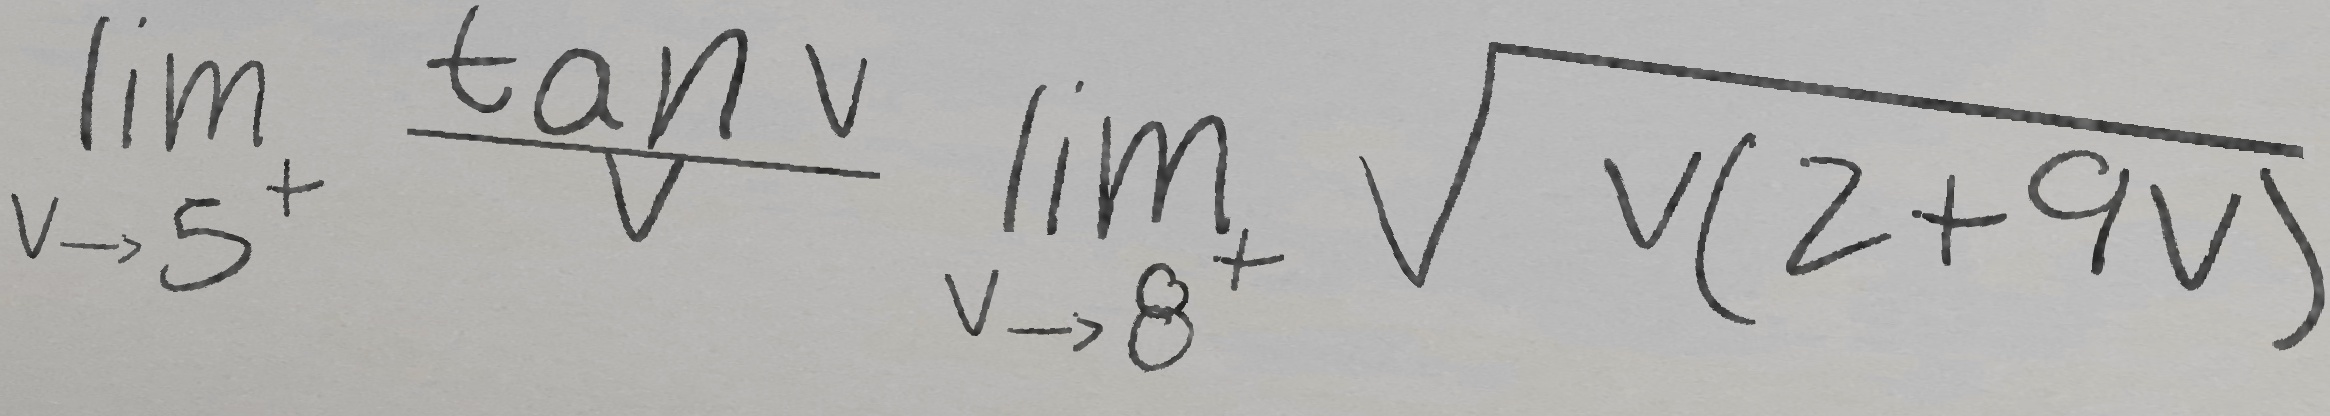 \lim_{v \to 5^+} \frac{\tan v}{v} \lim_{v \to 8^+} \sqrt{v(2+9v)}